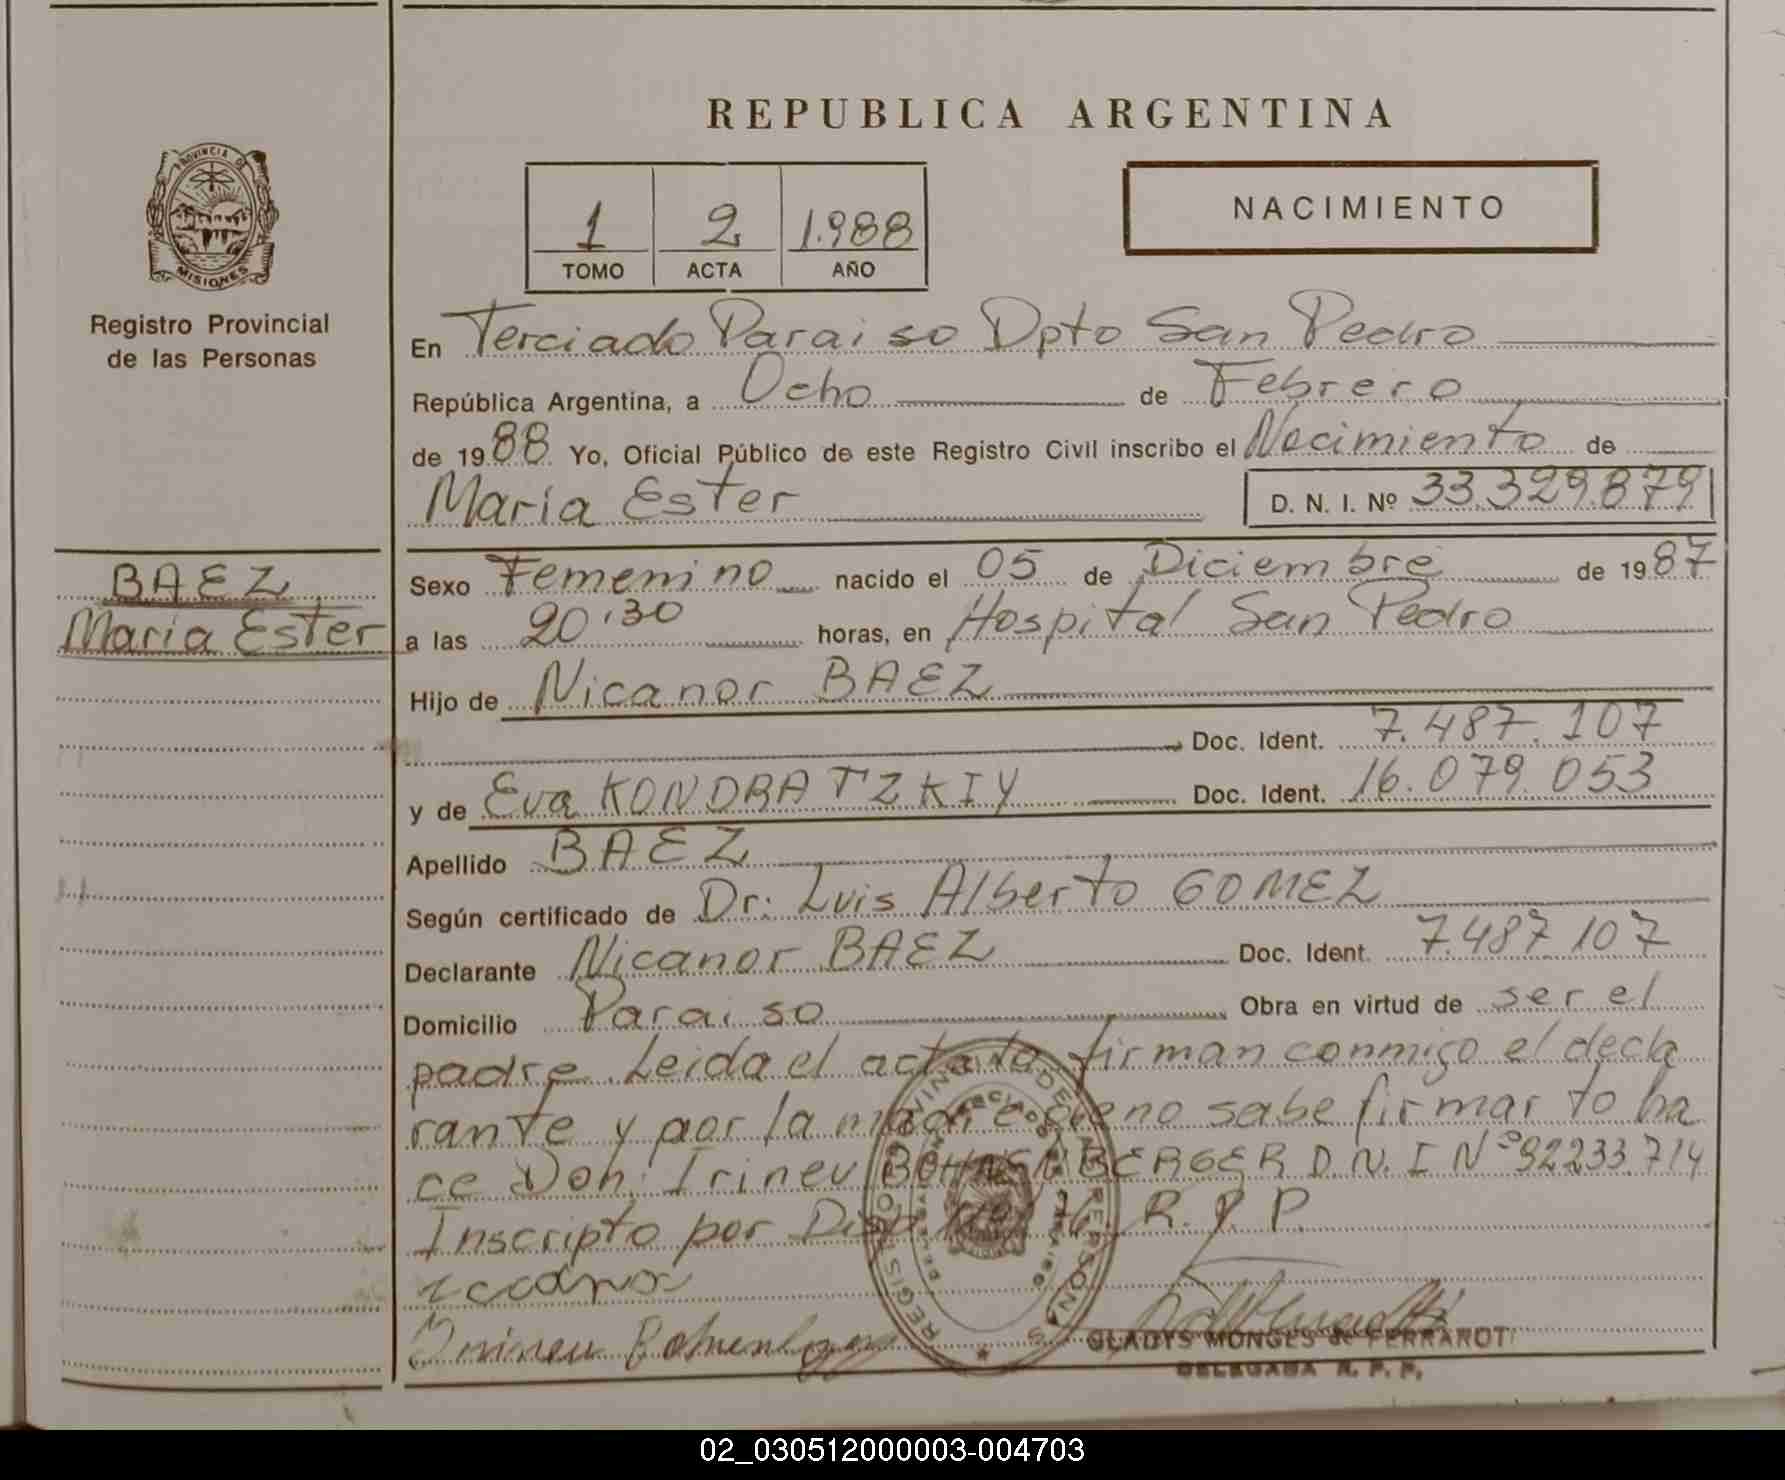 REPUBLICA ARGENTINA
PROVINCIA DE
MISIONES
Registro Provincial
de las Personas
1 2 1.988
TOMO ACTA AÑO
NACIMIENTO
En Terciado Paraiso Dpto San Pedro
República Argentina, a Ocho de Febrero
de 1988 Yo, Oficial Público de este Registro Civil inscribo el Nacimiento de
María Ester D. N. I. Nº 33.329.879
BAEZ
María Ester
Sexo Femenino nacido el 05 de Diciembre de 1987
a las 20'30 horas, en Hospital San Pedro
Hijo de Nicanor BAEZ
Doc. Ident. 7.487.107
y de Eva KONDRATZKIY Doc. Ident. 16.079.053
Apellido BAEZ
Según certificado de Dr. Luis Alberto GOMEZ
Declarante Nicanor BAEZ Doc. Ident. 7.487.107
Domicilio Paraiso Obra en virtud de ser el
padre. Leida el acta la firman conmigo el decla
rante y por la madre que no sabe firmar lo ha
ce Don: Irineu BOHNENBERGER D.N.I Nº 92233.714
Inscripto por Disp R.P.P.
Irineu
GLADYS MONGES de FERRAROTTI
DELEGADA R. P. P.
REGISTRO PROVINCIAL DE LAS PERSONAS
02_030512000003-004703